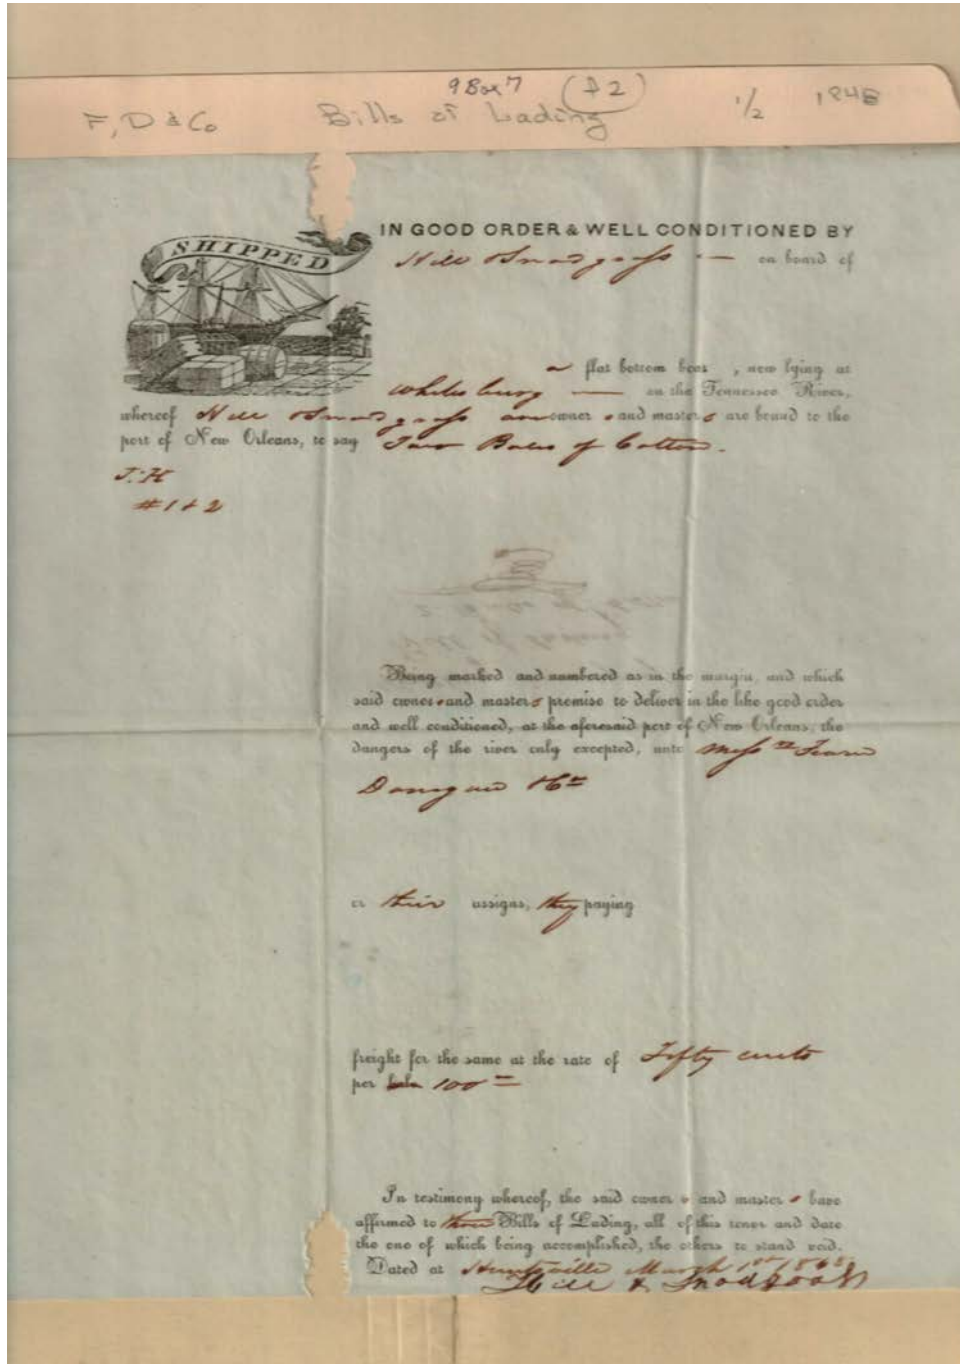 9 Box 7 (#2)
F, D & Co Bills of Lading 1/2 1848
SHIPPED
IN GOOD ORDER & WELL CONDITIONED BY
Hill & Snodgrass — on board of
a flat bottom boat , now lying at
Whitesburg — on the Tennessee River,
whereof Hill & Snodgrass are owner s and master s are bound to the
port of New Orleans, to say Two Bales of Cotton.
J. H
#1 & 2
Being marked and numbered as in the margin, and which
said owner s and master s promise to deliver in the like good order
and well conditioned, at the aforesaid port of New Orleans, the
dangers of the river only excepted, unto Messrs Fearn
Donegan & Co
or their assigns, they paying
freight for the same at the rate of Fifty cents
per bale 100 lbs
In testimony whereof, the said owner s and master s have
affirmed to three Bills of Lading, all of this tenor and date
the one of which being accomplished, the others to stand void.
Dated at Huntsville March 1st 1848
Hill & Snodgrass